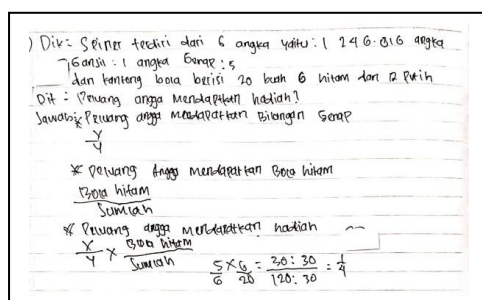 ) Dik = Spiner terdiri dari 6 angka yaitu : 1 2 4 6. 8 10 angka
Ganjil : 1 angka Genap : 5
dan kantong bola berisi 20 buah 6 hitam dan 12 Putih
Dit = Peluang angga Mendapatkan hadiah?
Jawab : * Peluang angga mendapatkan Bilangan Genap
X
Y
* Peluang Angga mendapatkan Bola hitam
Bola hitam
Jumlah
* Peluang angga mendapatkan hadiah
X/Y × Bola hitam/Jumlah
5/6 × 6/20 = 30 : 30/120 : 30 = 1/4